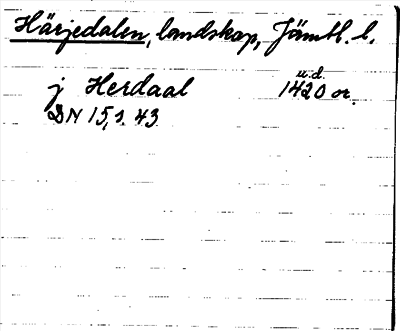 Härjedalen, landskap, Jämtl. l.
u.d.
j Herdaal 1420 or.
DN 15,1. 43